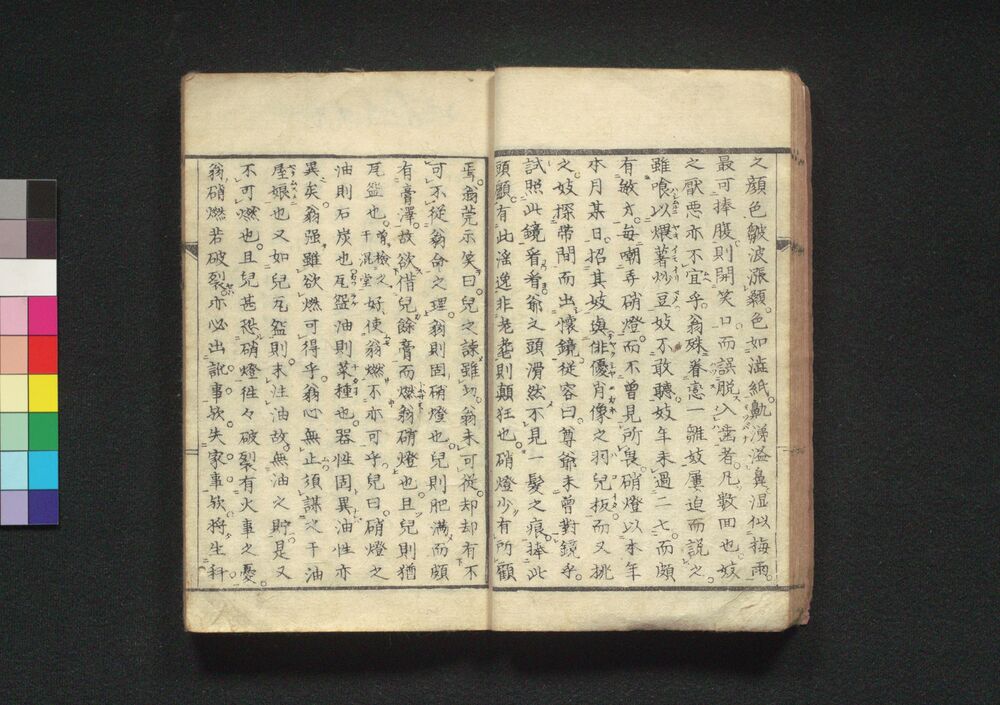 之顔色皺波漲額色如溢紙鼽湧溢鼻湿似梅雨
最可捧腹則開笑口而誤脱入歯者凡數回也妓
之厭悪亦不宜乎翁殊眷恋一雛妓屢迫而説之
雖喰以煨薯炒豆妓不敢聴妓年未過二七而頗
有敏才毎嘲弄硝燈而不曽見所畏硝燈以本年
本月某日招其妓與俳優肖像之羽兒板而又挑
之妓探帯間而出懐鏡従容曰尊爺未曽對鏡乎
試照此鏡看看爺之頭滑然不見一髪之痕捧此
頭顱有此淫逸非老耄則顛狂也硝燈少有所顧
焉翁莞尓笑曰兒之諫雖切翁未可従却却有不
可不従翁命之理翁則固硝燈也兒則肥満而頗
有膏澤故欲借兒餘膏而燃翁硝燈也且兒則猶
瓦盌也曽檢之干混堂好使翁燃不亦可乎兒曰硝燈之
油則石炭也瓦盌油則菜種也器性固異油性亦
異矣翁强雖欲燃可得乎翁心無止須謀之干油
屋娘也又如兒瓦盌則未注油故無油之貯是又
不可燃也且兒甚恐硝燈徃々破裂有火事之憂
翁硝燃若破裂亦必出訛事欤失家事欤将生科